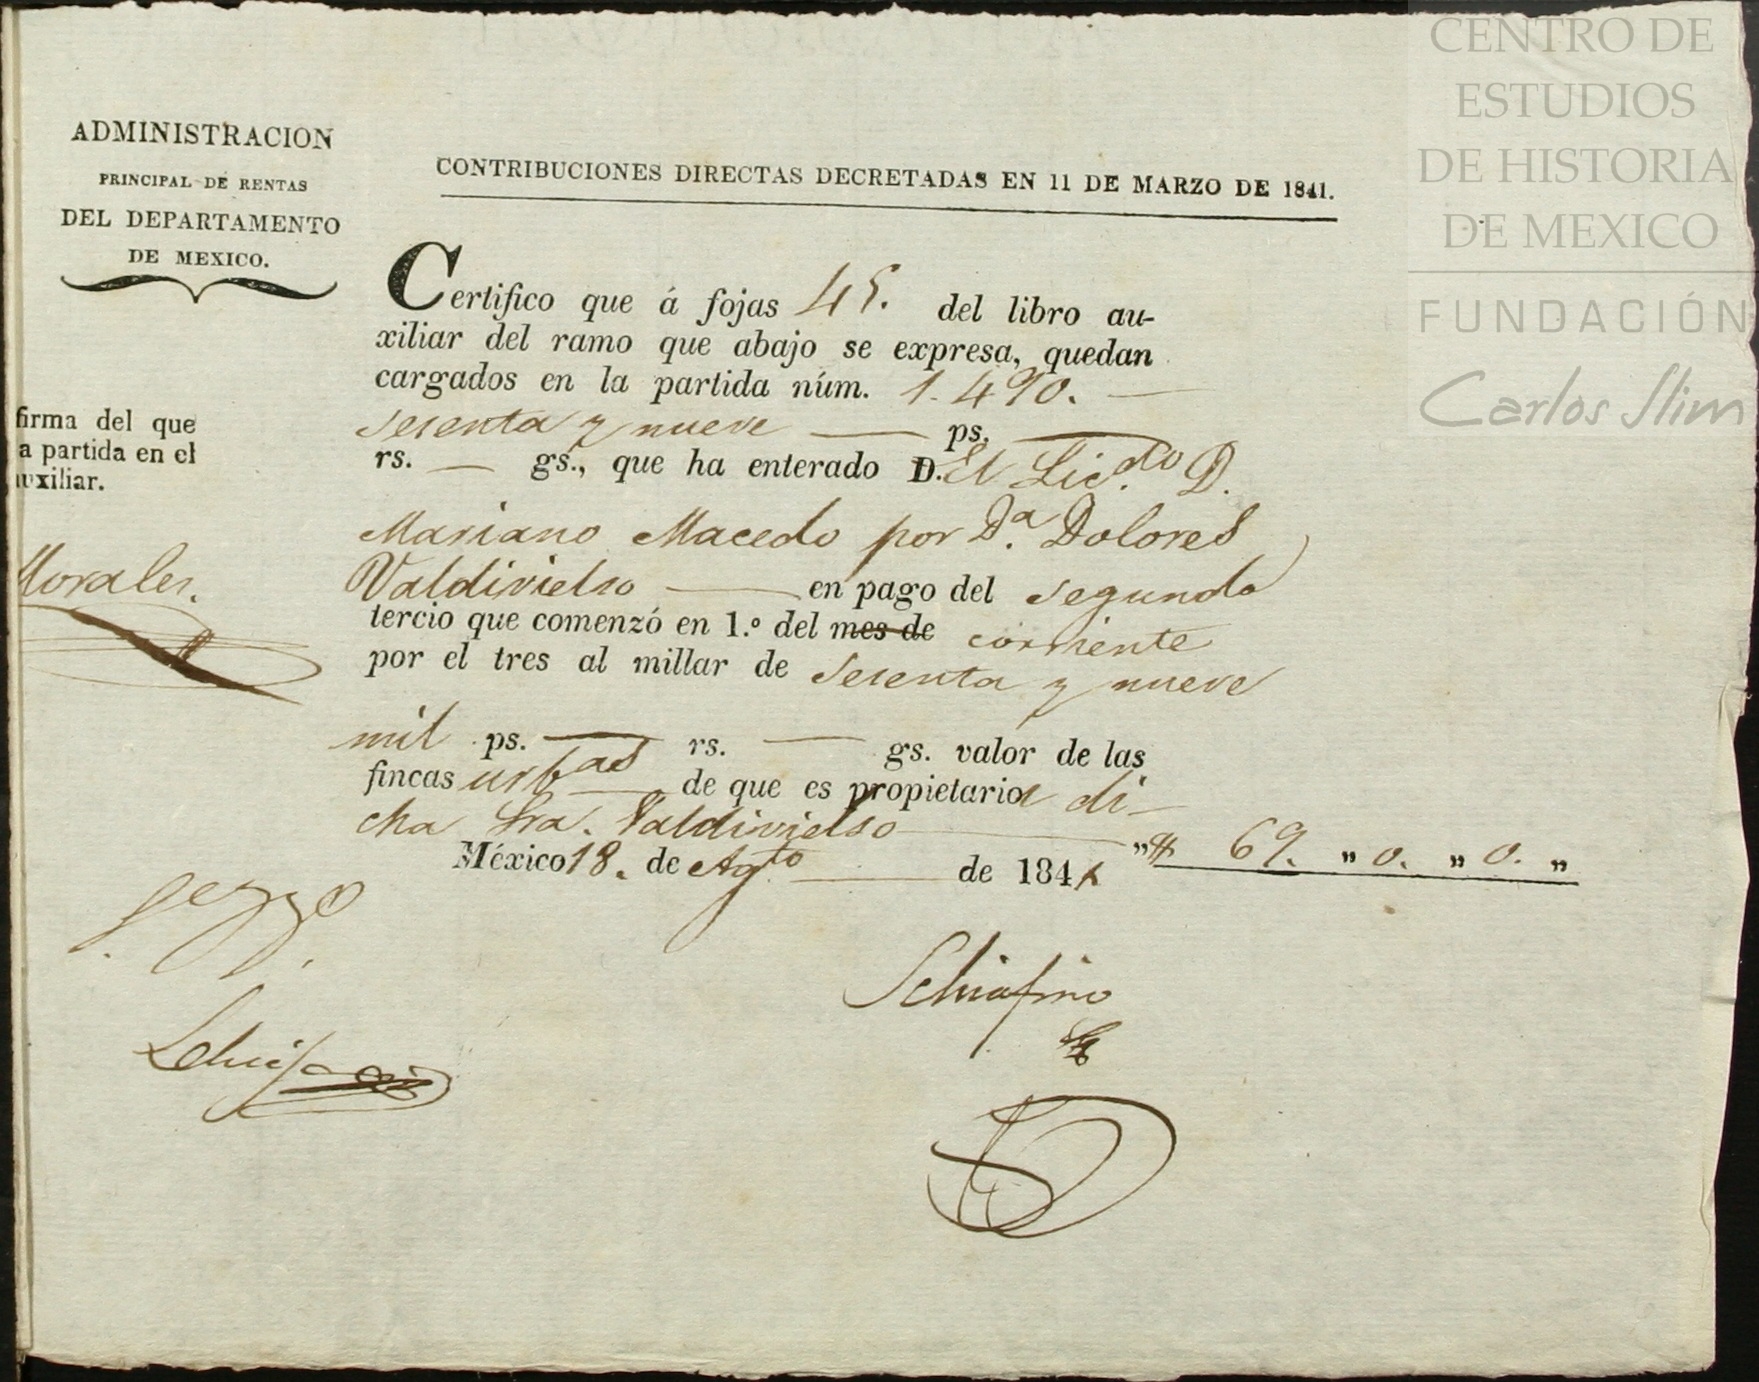 CENTRO DE
ESTUDIOS
DE HISTORIA
DE MEXICO
FUNDACIÓN
Carlos Slim
ADMINISTRACION
PRINCIPAL DE RENTAS
DEL DEPARTAMENTO
DE MEXICO.
CONTRIBUCIONES DIRECTAS DECRETADAS EN 11 DE MARZO DE 1841.
Certifico que á fojas 45. del libro au-
xiliar del ramo que abajo se expresa, quedan
cargados en la partida núm. 1.490.
sesenta y nueve ps.
rs. gs., que ha enterado D. El Lic.do D.
Mariano Macedo por D.a Dolores
Valdivielso en pago del segundo
tercio que comenzó en 1.º del mes de corriente
por el tres al millar de sesenta y nueve
mil ps. rs. gs. valor de las
fincas urbas de que es propietaria di-
cha Sra. Valdivielso
"$ 69. " 0. " 0. "
México 18. de Agto de 1841
firma del que
a partida en el
uxiliar.
Morales.
Schiafino